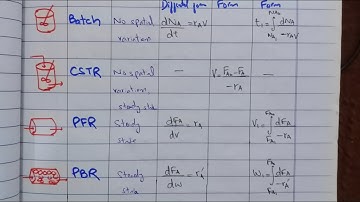 Differential form Form Form
Batch No spatial variation dNA/dt = rAV t1 = ∫NA1^NA0 dNA/-rAV
CSTR No spatial variation, steady state — V = FA0 - FA/-rA —
PFR Steady state dFA/dV = rA V1 = ∫FA1^FA0 dFA/-rA
PBR Steady state dFA/dW = r'A W1 = ∫FA1^FA0 dFA/-r'A